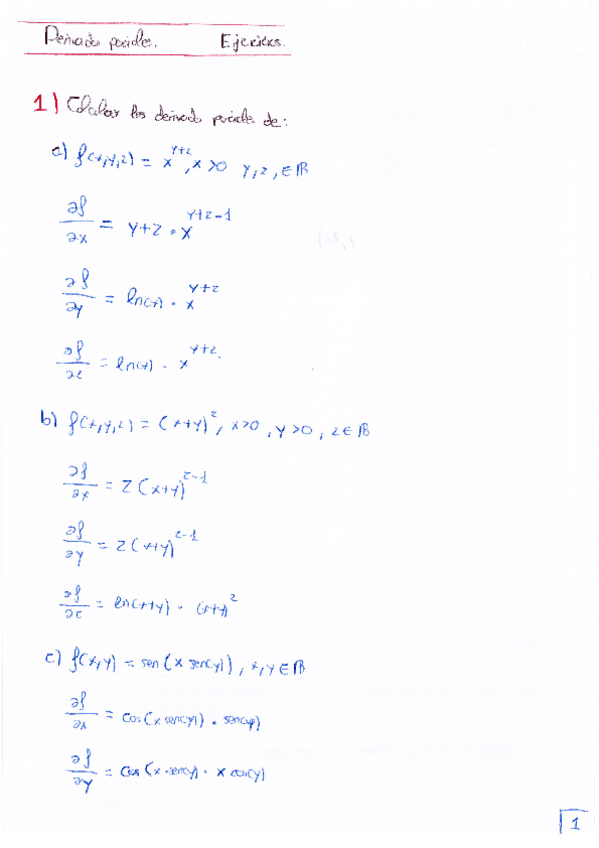 Derivadas parciales. Ejercicios.
1) Calcular las derivadas parciales de:
a) f(x,y,z) = x^{y+z}, x>0 y,z, ∈ ℝ
∂f/∂x = y+z · x^{y+z-1}
∂f/∂y = ln(x) · x^{y+z}
∂f/∂z = ln(x) · x^{y+z}.
b) f(x,y,z) = (x+y)^z, x>0, y>0, z∈ℝ
∂f/∂x = z(x+y)^{z-1}
∂f/∂y = z(x+y)^{z-1}
∂f/∂z = ln(x+y) · (x+y)^z
c) f(x,y) = sen(x sen(y)), x,y∈ℝ
∂f/∂x = cos(x sen(y)) · sen(y)
∂f/∂y = cos(x·sen(y)) · x cos(y)
1